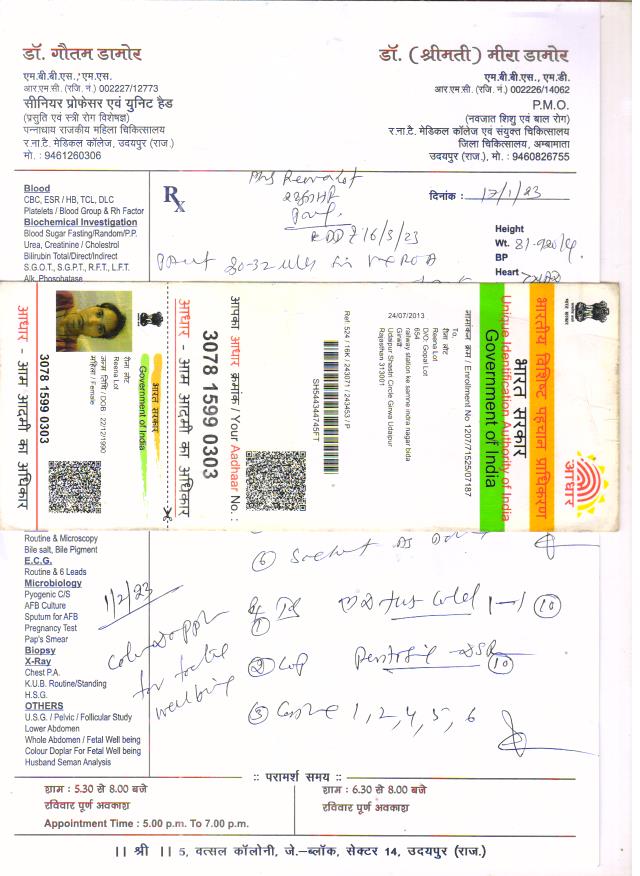 डॉ. गौतम डामोर
एम.बी.बी.एस., एम.एस.
आर.एम.सी. (रजि. नं.) 002227/12773
सीनियर प्रोफेसर एवं युनिट हैड
(प्रसुति एवं स्त्री रोग विशेषज्ञ)
पन्नाधाय राजकीय महिला चिकित्सालय
र.ना.टै. मेडिकल कॉलेज, उदयपुर (राज.)
मो. : 9461260306
डॉ. (श्रीमती) मीरा डामोर
एम.बी.बी.एस., एम.डी.
आर.एम.सी. (रजि. नं.) 002226/14062
P.M.O.
(नवजात शिशु एवं बाल रोग)
र.ना.टै. मेडिकल कॉलेज एवं संयुक्त चिकित्सालय
जिला चिकित्सालय, अम्बामाता
उदयपुर (राज.), मो. : 9460826755
Blood
CBC, ESR / HB, TCL, DLC
Platelets / Blood Group & Rh Factor
Biochemical Investigation
Blood Sugar Fasting/Random/P.P.
Urea, Creatinine / Cholestrol
Bilirubin Total/Direct/Indirect
S.G.O.T., S.G.P.T., R.F.T., L.F.T.
Alk. Phosphatase
Rx
दिनांक : 17/1/23
EDD 16/3/23
30-32
Height
Wt.
BP
Heart
आधार
भारतीय विशिष्ट पहचान प्राधिकरण
भारत सरकार
Unique Identification Authority of India
Government of India
नामांकन क्रम / Enrollment No 1207/71525/07187
To,
रीना लोट
Reena Lot
D/O: Gopal Lot
654
railway station ke samne indra nagar bida
Girwa
Udaipur Shastri Circle Girwa Udaipur
Rajasthan 313001
24/07/2013
Ref: 524 / 16K / 243071 / 243453 / P
SH544344745FT
आपका आधार क्रमांक / Your Aadhaar No. :
3078 1599 0303
आधार - आम आदमी का अधिकार
भारत सरकार
Government of India
रीना लोट
Reena Lot
जन्म तिथि / DOB : 22/12/1990
महिला / Female
3078 1599 0303
आधार - आम आदमी का अधिकार
Routine & Microscopy
Bile salt, Bile Pigment
E.C.G.
Routine & 6 Leads
Microbiology
Pyogenic C/S
AFB Culture
Sputum for AFB
Pregnancy Test
Pap's Smear
Biopsy
X-Ray
Chest P.A.
K.U.B. Routine/Standing
H.S.G.
OTHERS
U.S.G. / Pelvic / Follicular Study
Lower Abdomen
Whole Abdomen / Fetal Well being
Colour Doplar For Fetal Well being
Husband Seman Analysis
1/2/23
for foetal
well being
6
1
10
2 Cap
10
3 1, 2, 4, 5, 6
:: परामर्श समय ::
शाम : 5.30 से 8.00 बजे
रविवार पूर्ण अवकाश
Appointment Time : 5.00 p.m. To 7.00 p.m.
शाम : 6.30 से 8.00 बजे
रविवार पूर्ण अवकाश
|| श्री || 5, वत्सल कॉलोनी, जे.–ब्लॉक, सेक्टर 14, उदयपुर (राज.)